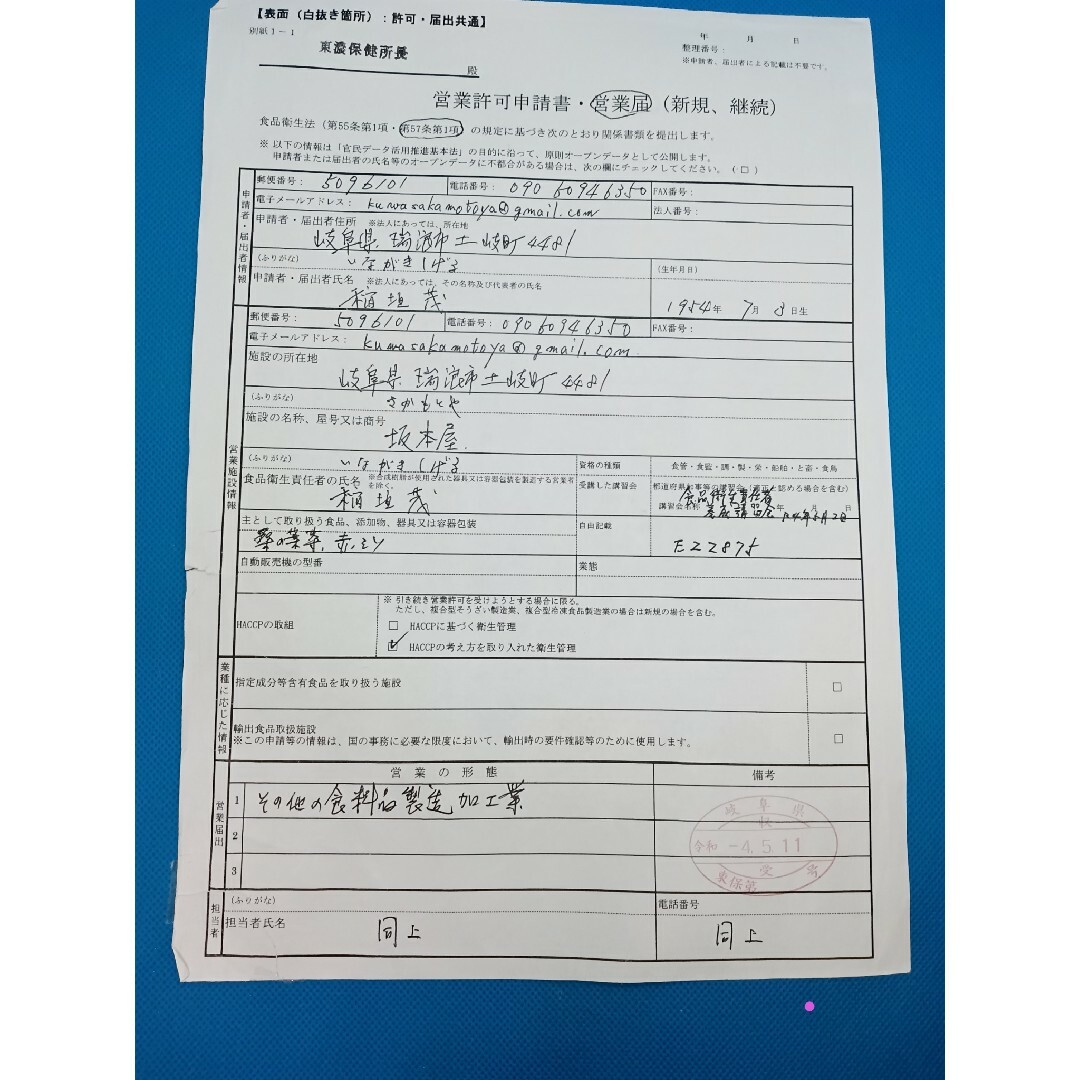 【表面（白抜き箇所）：許可・届出共通】
別紙１－１
年 月 日
整理番号：
※申請者、届出者による記載は不要です。
東濃保健所長
殿
営業許可申請書・営業届（新規、継続）
食品衛生法（第55条第1項・第57条第1項）の規定に基づき次のとおり関係書類を提出します。
※ 以下の情報は「官民データ活用推進基本法」の目的に沿って、原則オープンデータとして公開します。
申請者または届出者の氏名等のオープンデータに不都合がある場合は、次の欄にチェックしてください。（□）
申請者・届出者情報
郵便番号： 5096101 電話番号： 090 6094 6350 FAX番号：
電子メールアドレス： kuwasakamotoya@gmail.com 法人番号：
申請者・届出者住所 ※法人にあっては、所在地
岐阜県 瑞浪市土岐町4481
（ふりがな） いながきしげる （生年月日）
申請者・届出者氏名 ※法人にあっては、その名称及び代表者の氏名
稲垣茂 1954年 7月 3日生
営業施設情報
郵便番号： 5096101 電話番号： 090 6094 6350 FAX番号：
電子メールアドレス： kuwasakamotoya@gmail.com
施設の所在地
岐阜県 瑞浪市土岐町4481
（ふりがな） さかもとや
施設の名称、屋号又は商号
坂本屋
（ふりがな） いながきしげる 資格の種類 食管・食監・調・製・栄・船舶・と畜・食鳥
食品衛生責任者の氏名 ※合成樹脂が使用された器具又は容器包装を製造する営業者を除く。
稲垣茂
受講した講習会 都道府県知事等の講習会（適正と認める場合を含む）
講習会名称 食品衛生責任者養成講習会 年 月 日
主として取り扱う食品、添加物、器具又は容器包装 自由記載
桑の葉茶、 E22875
自動販売機の型番 業態
HACCPの取組
※ 引き続き営業許可を受けようとする場合に限る。
ただし、複合型そうざい製造業、複合型冷凍食品製造業の場合は新規の場合を含む。
□ HACCPに基づく衛生管理
☑ HACCPの考え方を取り入れた衛生管理
業種に応じた情報
指定成分等含有食品を取り扱う施設 □
輸出食品取扱施設
※この申請等の情報は、国の事務に必要な限度において、輸出時の要件確認等のために使用します。 □
営業届出
営業の形態 備考
1 その他の食料品製造加工業
2
3
岐阜県
収
令和 -4.5.11
受
東保第 号
担当者
（ふりがな） 電話番号
担当者氏名 同上 同上